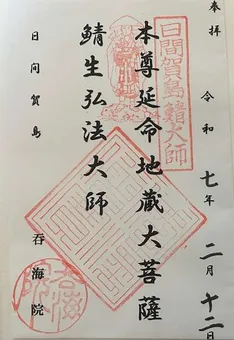 奉拝 令和七年二月十二日
日間賀島鯖大師
本尊延命地蔵大菩薩
鯖生弘法大師
日间賀島 呑海院
呑海院